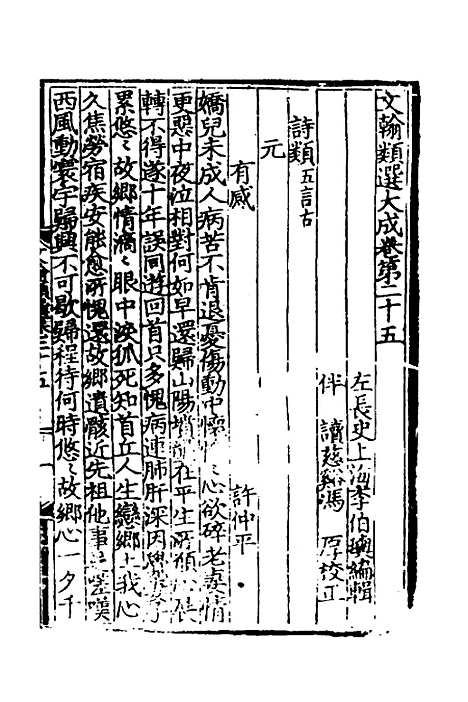 文翰類選大成卷第二十五
左長史上海李伯璵編輯
伴讀慈谿馮厚校正
詩類五言古
元
有感 許仲平
嬌兒未成人病苦不肯退憂傷動中懷心欲碎老妻情
更惡中夜泣相對何如早還歸山陽墳在平生所願
轉不得遂十年誤同遊回首只多愧病連肺肝深因
累悠〻故鄉情滴〻眼中淚狐死知首丘人生戀鄉土我心
久焦勞宿疾安能愈所愧還故鄉遺骸近先祖他事嗟嘆
西風動寰宇歸興不可歇歸程待何時悠〻故鄉心一夕千